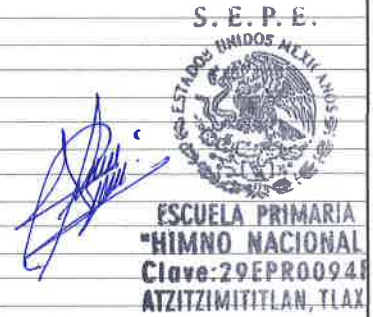 S. E. P. E.
ESTADOS UNIDOS MEXICANOS
ESCUELA PRIMARIA
"HIMNO NACIONAL
Clave:29EPR0094
ATZITZIMITITLAN, TLAX